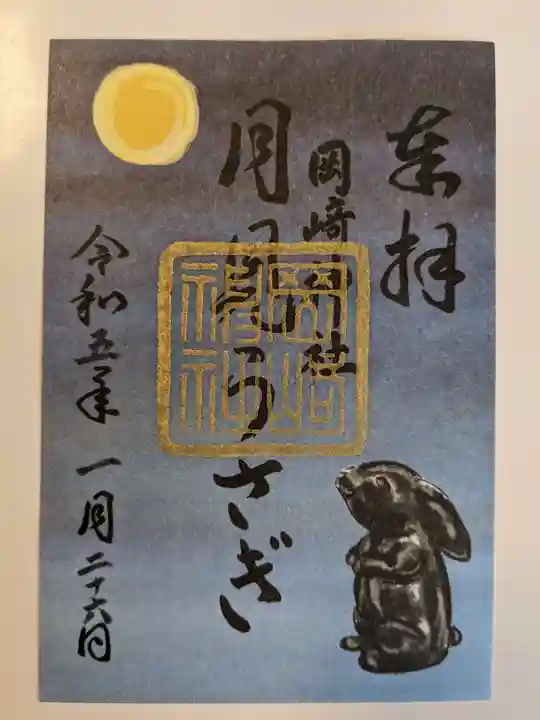 奉拝
岡崎神社
月見うさぎ
岡崎神社
令和五年 一月二十六日